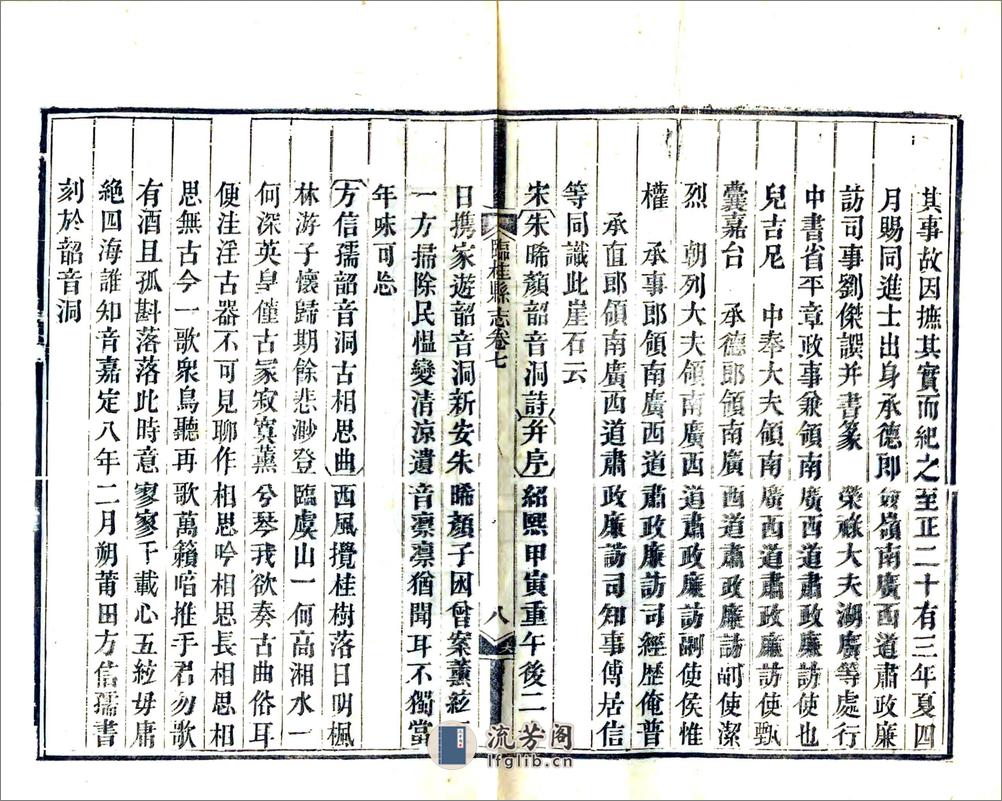 其事故因摭其實而紀之至正二十有三年夏四
月賜同進士出身承德郎僉嶺南廣西道肅政廉
訪司事劉傑譔并書篆　榮祿大夫湖廣等處行
中書省平章政事兼領南廣西道肅政廉訪使也
兒吉尼　中奉大夫領南廣西道肅政廉訪使甄
囊嘉台　承德郎領南廣西道肅政廉訪副使潔
烈　朝列大夫領南廣西道肅政廉訪副使侯惟
權　承事郎領南廣西道肅政廉訪司經歷俺普
承直郎領南廣西道肅政廉訪司知事傅居信
等同識此崖石云
宋朱晞顏韶音洞詩并序紹熙甲寅重午後二
日攜家遊韶音洞新安朱晞顏子囦曾案薰絃
一方掃除民慍變清涼遺音凛凛猶聞耳不獨當
年味可忘
方信孺韶音洞古相思曲西風攪桂樹落日明楓
林游子懷歸期餘悲渺登臨虞山一何高湘水一
何深英皇僅古冢寂寞薰兮琴我欲奏古曲俗耳
便洼淫古器不可見聊作相思吟相思長相思相
思無古今一歌衆鳥聽再歌萬籟喑推手君勿歌
有酒且孤斟落落此時意寥寥千載心五絃毋庸
絶四海誰知音嘉定八年二月朔莆田方信孺書
刻於韶音洞
臨桂縣志卷七
八
流芳阁
lfglib.cn